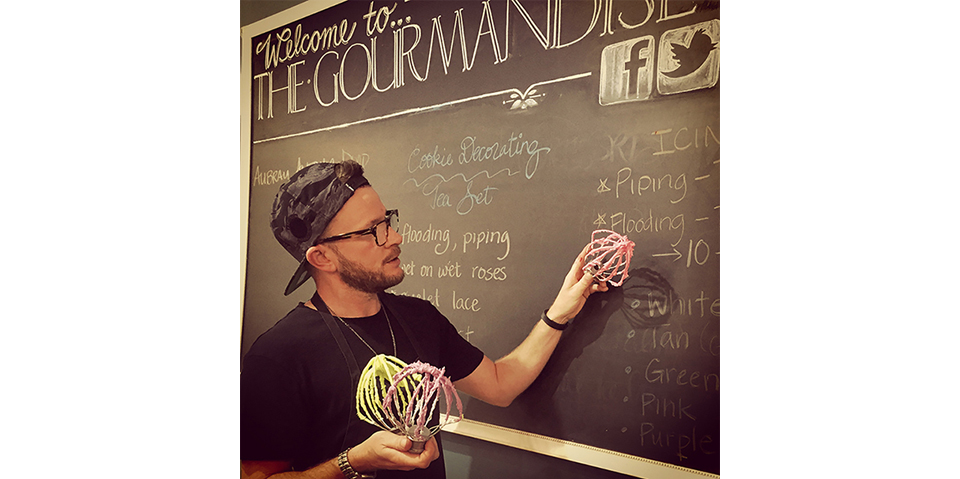 Welcome to...
THE·GOURMANDISE
f
Cookie Decorating
Tea Set
flooding, piping
wet on wet roses
lace
AUBRAY
ICIN
☆ Piping -
☆ Flooding -
→ 10 -
• White
• Tan
• Green
• Pink
• Purple